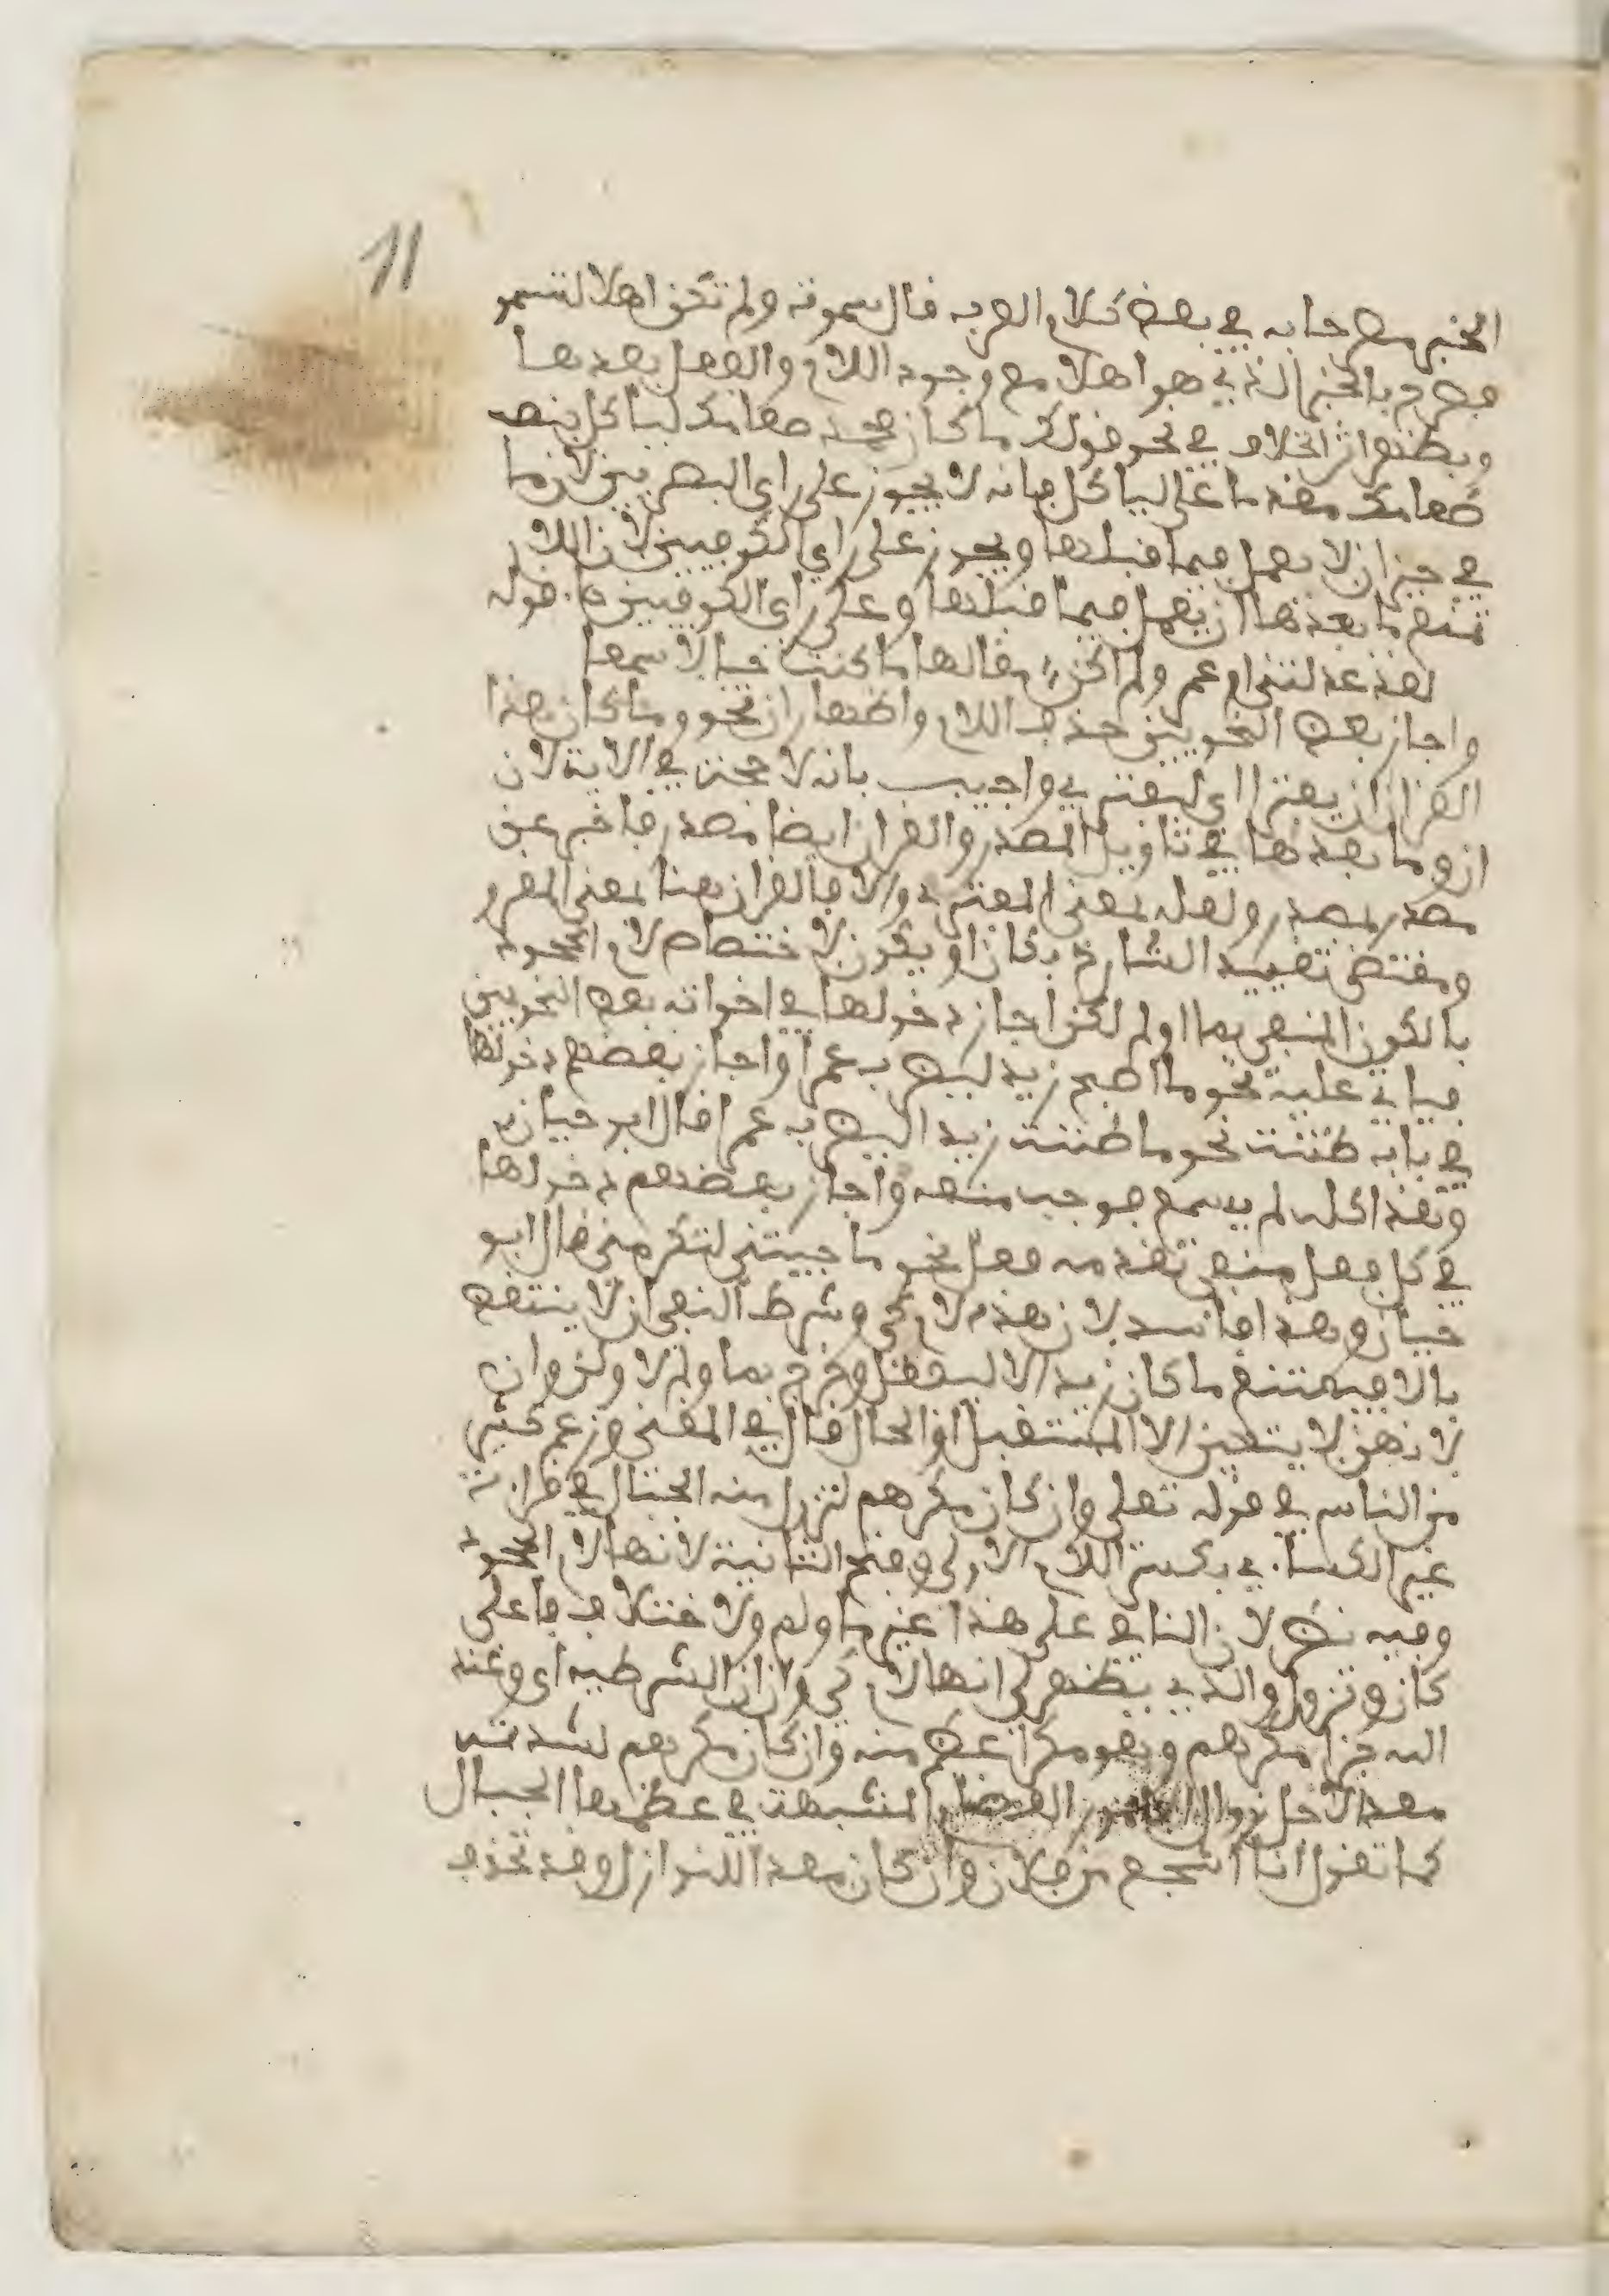 11
الخبر مصرحا به في بعض كلام العرب قال سموت ولم تكن اهلا لتسمو
فصرح بالخبر الذي هو اهلا مع وجود اللام والفعل بعدها
ويظهر اثر الخلاف في نحو قولك ما كان محمد طعامك لياكل بنصب
طعامك مقدما على لياكل فانه لا يجوز على راي البصريين لان ما
في حيز ان لا يعمل فيما قبلها ويجوز على راي الكوفيين لان اللام
تمنع ما بعدها ان يعمل فيما قبلها وعلى راي الكوفيين جاء قوله
لقد عدلتني ام عمرو ولم اكن مقالها ما كنت حيا لاسمعا
واجاز بعض النحويين حذف اللام واظهار ان نحو وما كان هذا
القران ان يفترا اي ليفتري واجيب بانه لا حجة في الاية لان
ان وما بعدها في تاويل المصدر والقران ايضا مصدر فاخبر عن
مصدر بمصدر ولعله بمعنى المفتري والا فالقران هنا بمعنى المقرو
ومقتضى تقييد الشارح بكان او يكون لاختصاص لام الجحود
بالكون المنفي بما او لم لكن اجاز دخولها في اخواته بعض النحويين
قياسا عليه نحو ما اصبح زيد ليضرب عمرا واجاز بعضهم دخولها
في باب ظننت نحو ما ظننت زيدا ليضرب عمرا قال ابو حيان
وهذا كله لم يسمع فوجب منعه واجاز بعضهم دخولها
في كل فعل منفي تقدمه فعل نحو ما جيتني لتكرمني قال ابو
حيان وهذا فاسد لان هذه لام كي وشرط النفي ان لا ينتقض
بالا فيمتنع ما كان زيد الا ليفعل وخرج بما ولم لا ولن وان
لانهن لا يتعين الا المستقبل او الحال قال في المغني وزعم كثير
من الناس في قوله تعلى وان كان مكرهم لتزول منه الجبال في قراءة
غير الكساءي بكسر اللام الاولى وفتح الثانية لانها لام الجحود
وفيه نظر لان النافي على هذا غير ما ولم ولاختلاف فاعلى
كان وتزول والذي يظهر لي انها لام كي وان ان الشرطية اي وعند
الله جزا مكرهم وهو مكرا عظم منه وان كان مكرهم لشدته
معدا لاجل زوال الامور العظام المشبهة في عظمها الجبال
كما تقول انا اشجع من فلان وان كان معدا للنوازل وقد تحذف